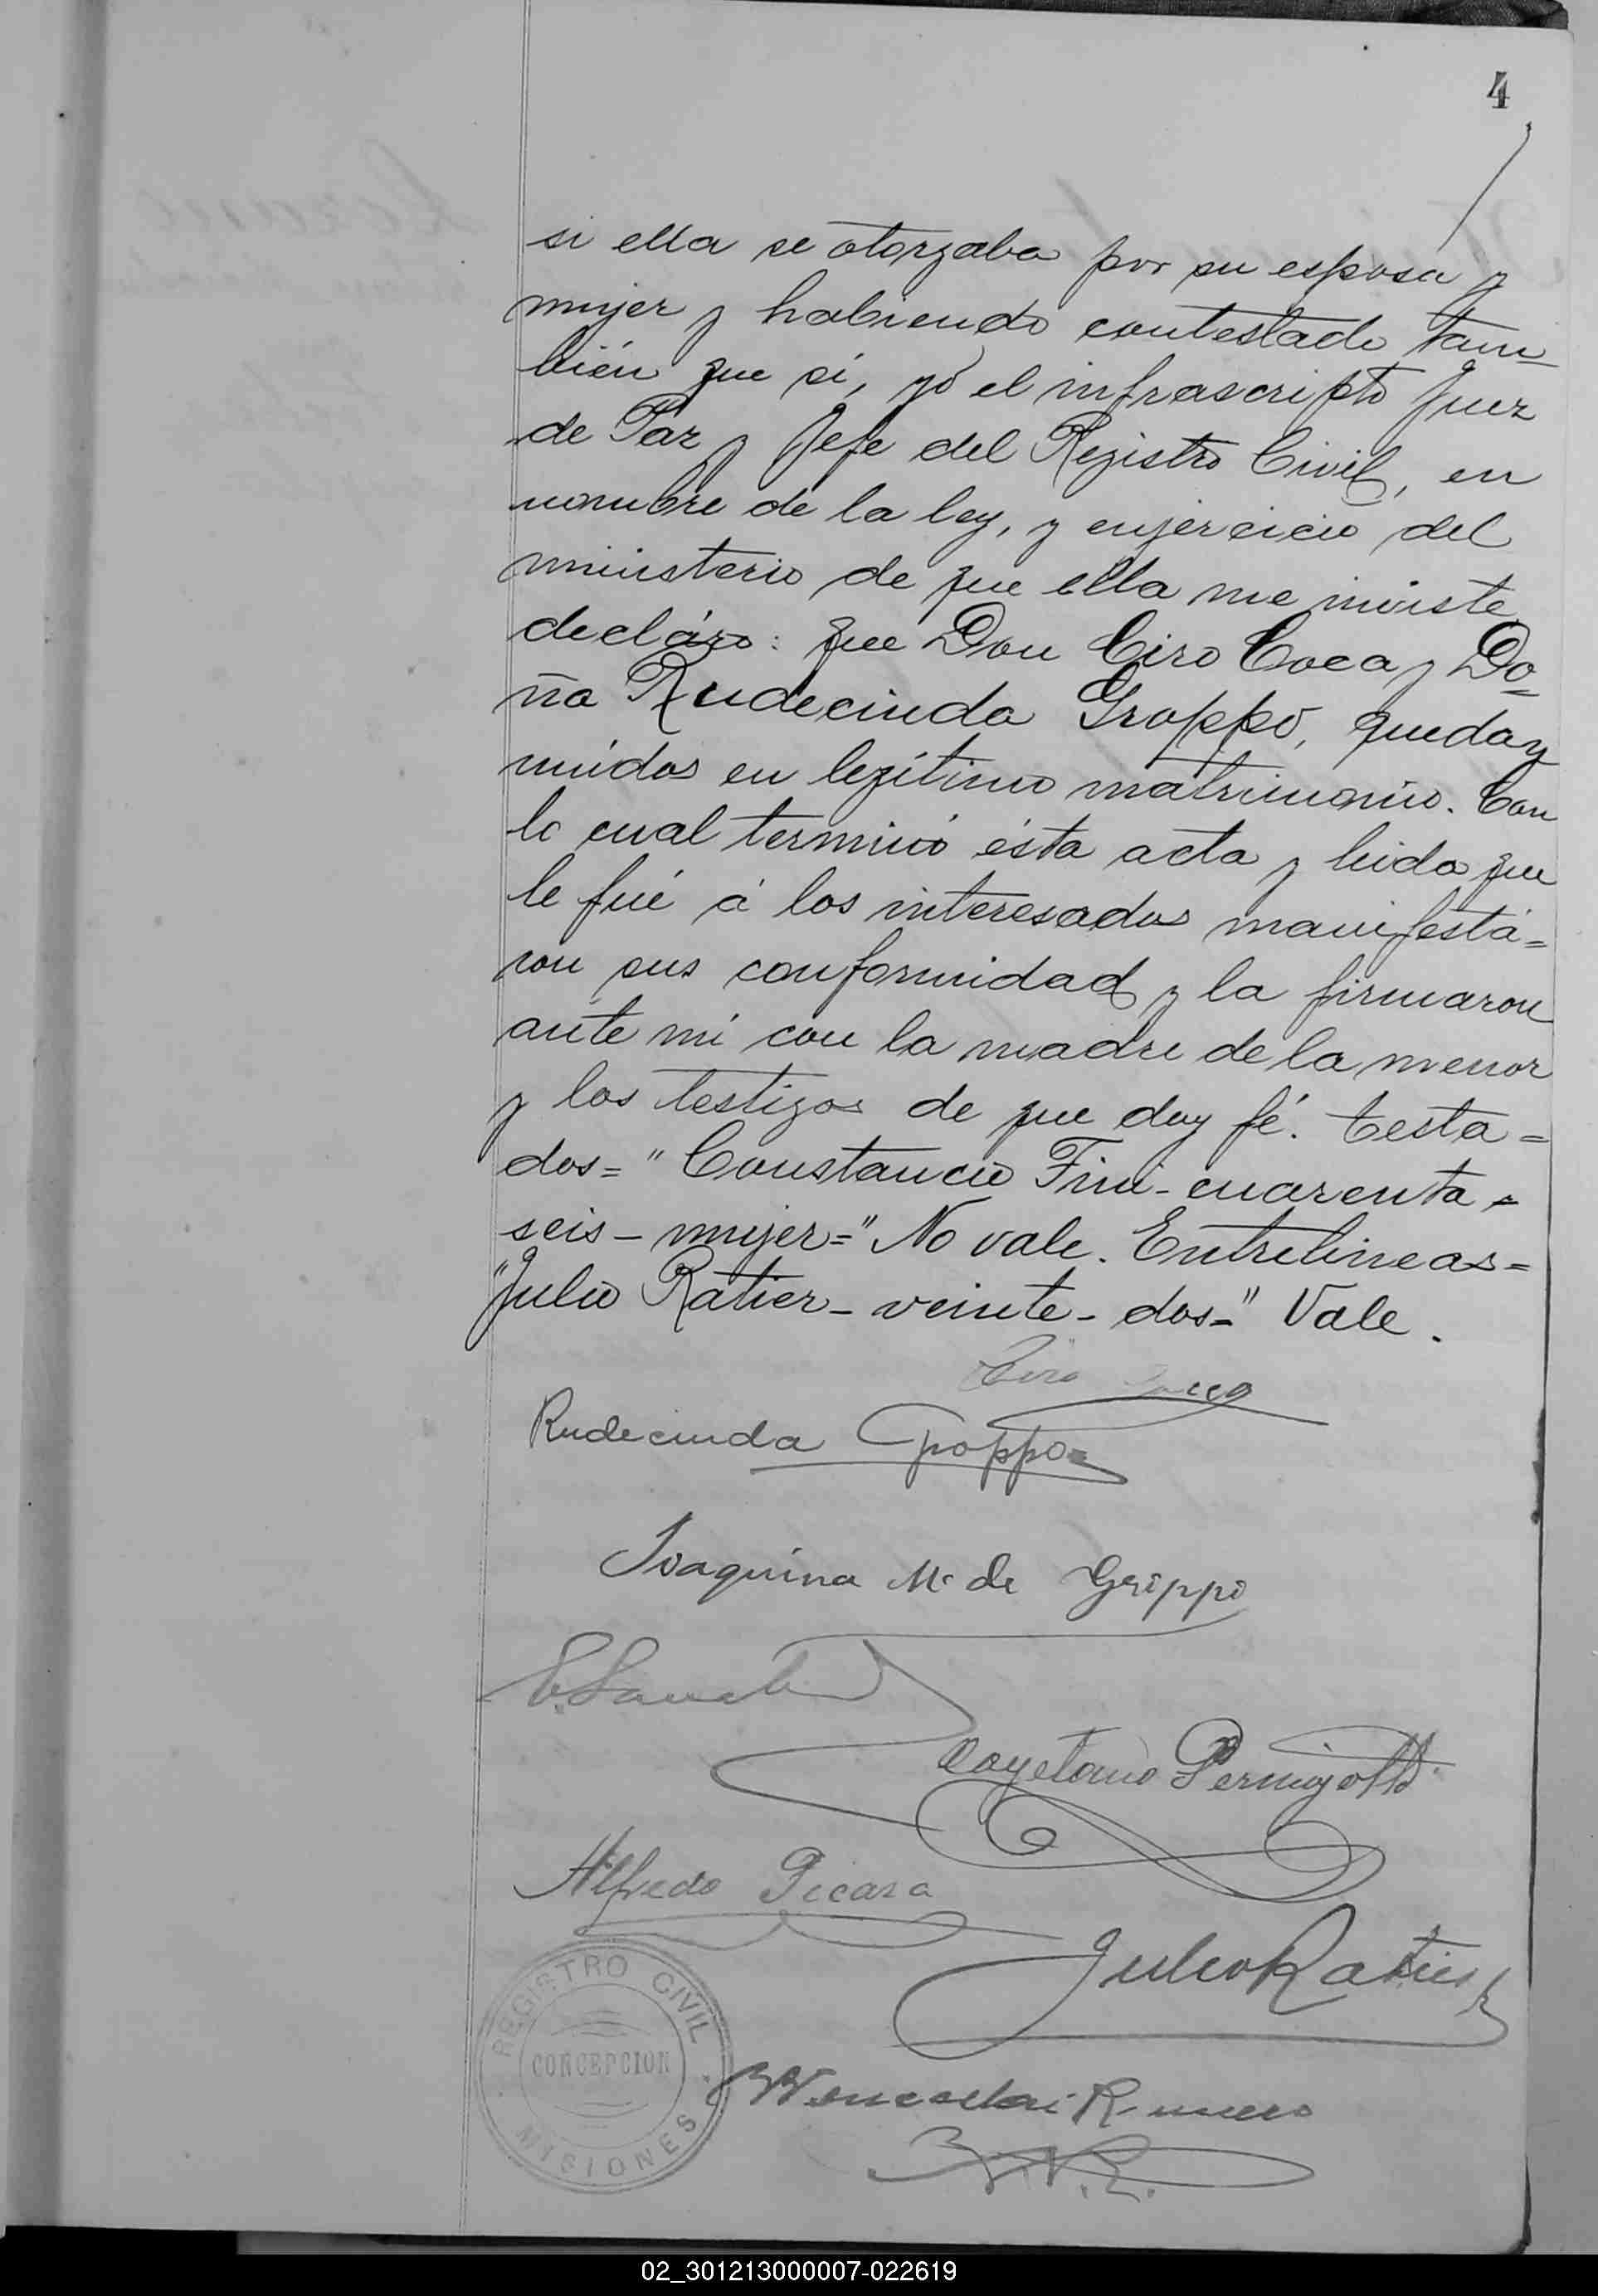 4
si ella se otorgaba por su esposa y
mujer y habiendo contestado tam-
bién que sí, yó el infrascripto Juez
de Paz y Jefe del Registro Civil, en
nombre de la ley, y enjercicio del
ministerio de que ella me inviste,
decláro: que Don Ciro Coca y Do-
ña Rudecinda Groppo, quedan
unídos en legítimo matrimonio. Con
lo cual terminó ésta acta y leida que
le fué á los interesados manifestá-
ron sus conformidad y la firmaron
ante mi con la madre de la menor
y los testigos de que doy fé. Testa-
dos= "Constancio Fini- cuarenta-
seis- mujer=" No vale. Entrelineas=
"Julio Ratier- veinte- dos=" Vale.
Ciro Coca
Rudecinda Groppo=
Joaquina M. de Grippo
Cayetano Pernigotti
Alfredo Picasa
Julio Ratier
REGISTRO CIVIL
CONCEPCION
MISIONES
02_301213000007-022619